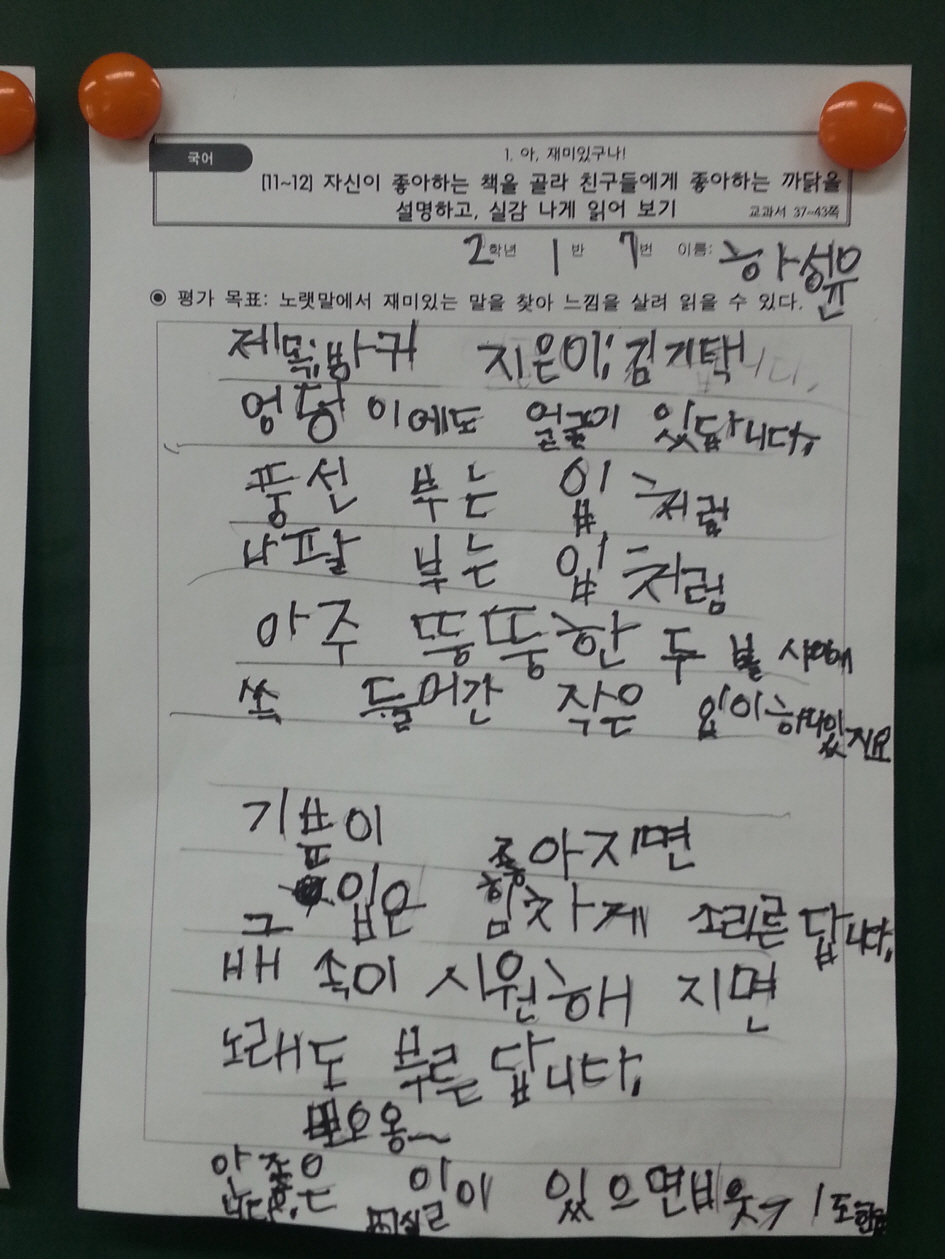 국어
1. 아, 재미있구나!
[11~12] 자신이 좋아하는 책을 골라 친구들에게 좋아하는 까닭을
설명하고, 실감 나게 읽어 보기 교과서 37~43쪽
2학년 1반 7번 이름: 하성윤
◉ 평가 목표: 노랫말에서 재미있는 말을 찾아 느낌을 살려 읽을 수 있다.
제목;방귀 지은이;김기택
엉덩이에도 얼굴이 있답니다.
풍선 부는 입처럼
나팔 부는 입처럼
아주 뚱뚱한 두 볼 사이에
쏙 들어간 작은 입이하나있지요
기쁨이 좋아지면
그 입은 힘차게 소리른답니다.
배 속이 시원해 지면
노래도 부른답니다.
뽀오옹~
안좋은 일이 있으면비웃기도한
니다. 피실